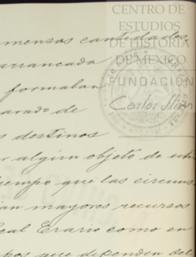 CENTRO DE
ESTUDIOS
DE HISTORIA
DE MEXICO
FUNDACIÓN
Carlos Slim
mensas cantidades
arrancada
formaban
arado de
s destinos
algun objeto de
empo que las circuns
an mayores recursos
eal Erario como en
pos que dependen del